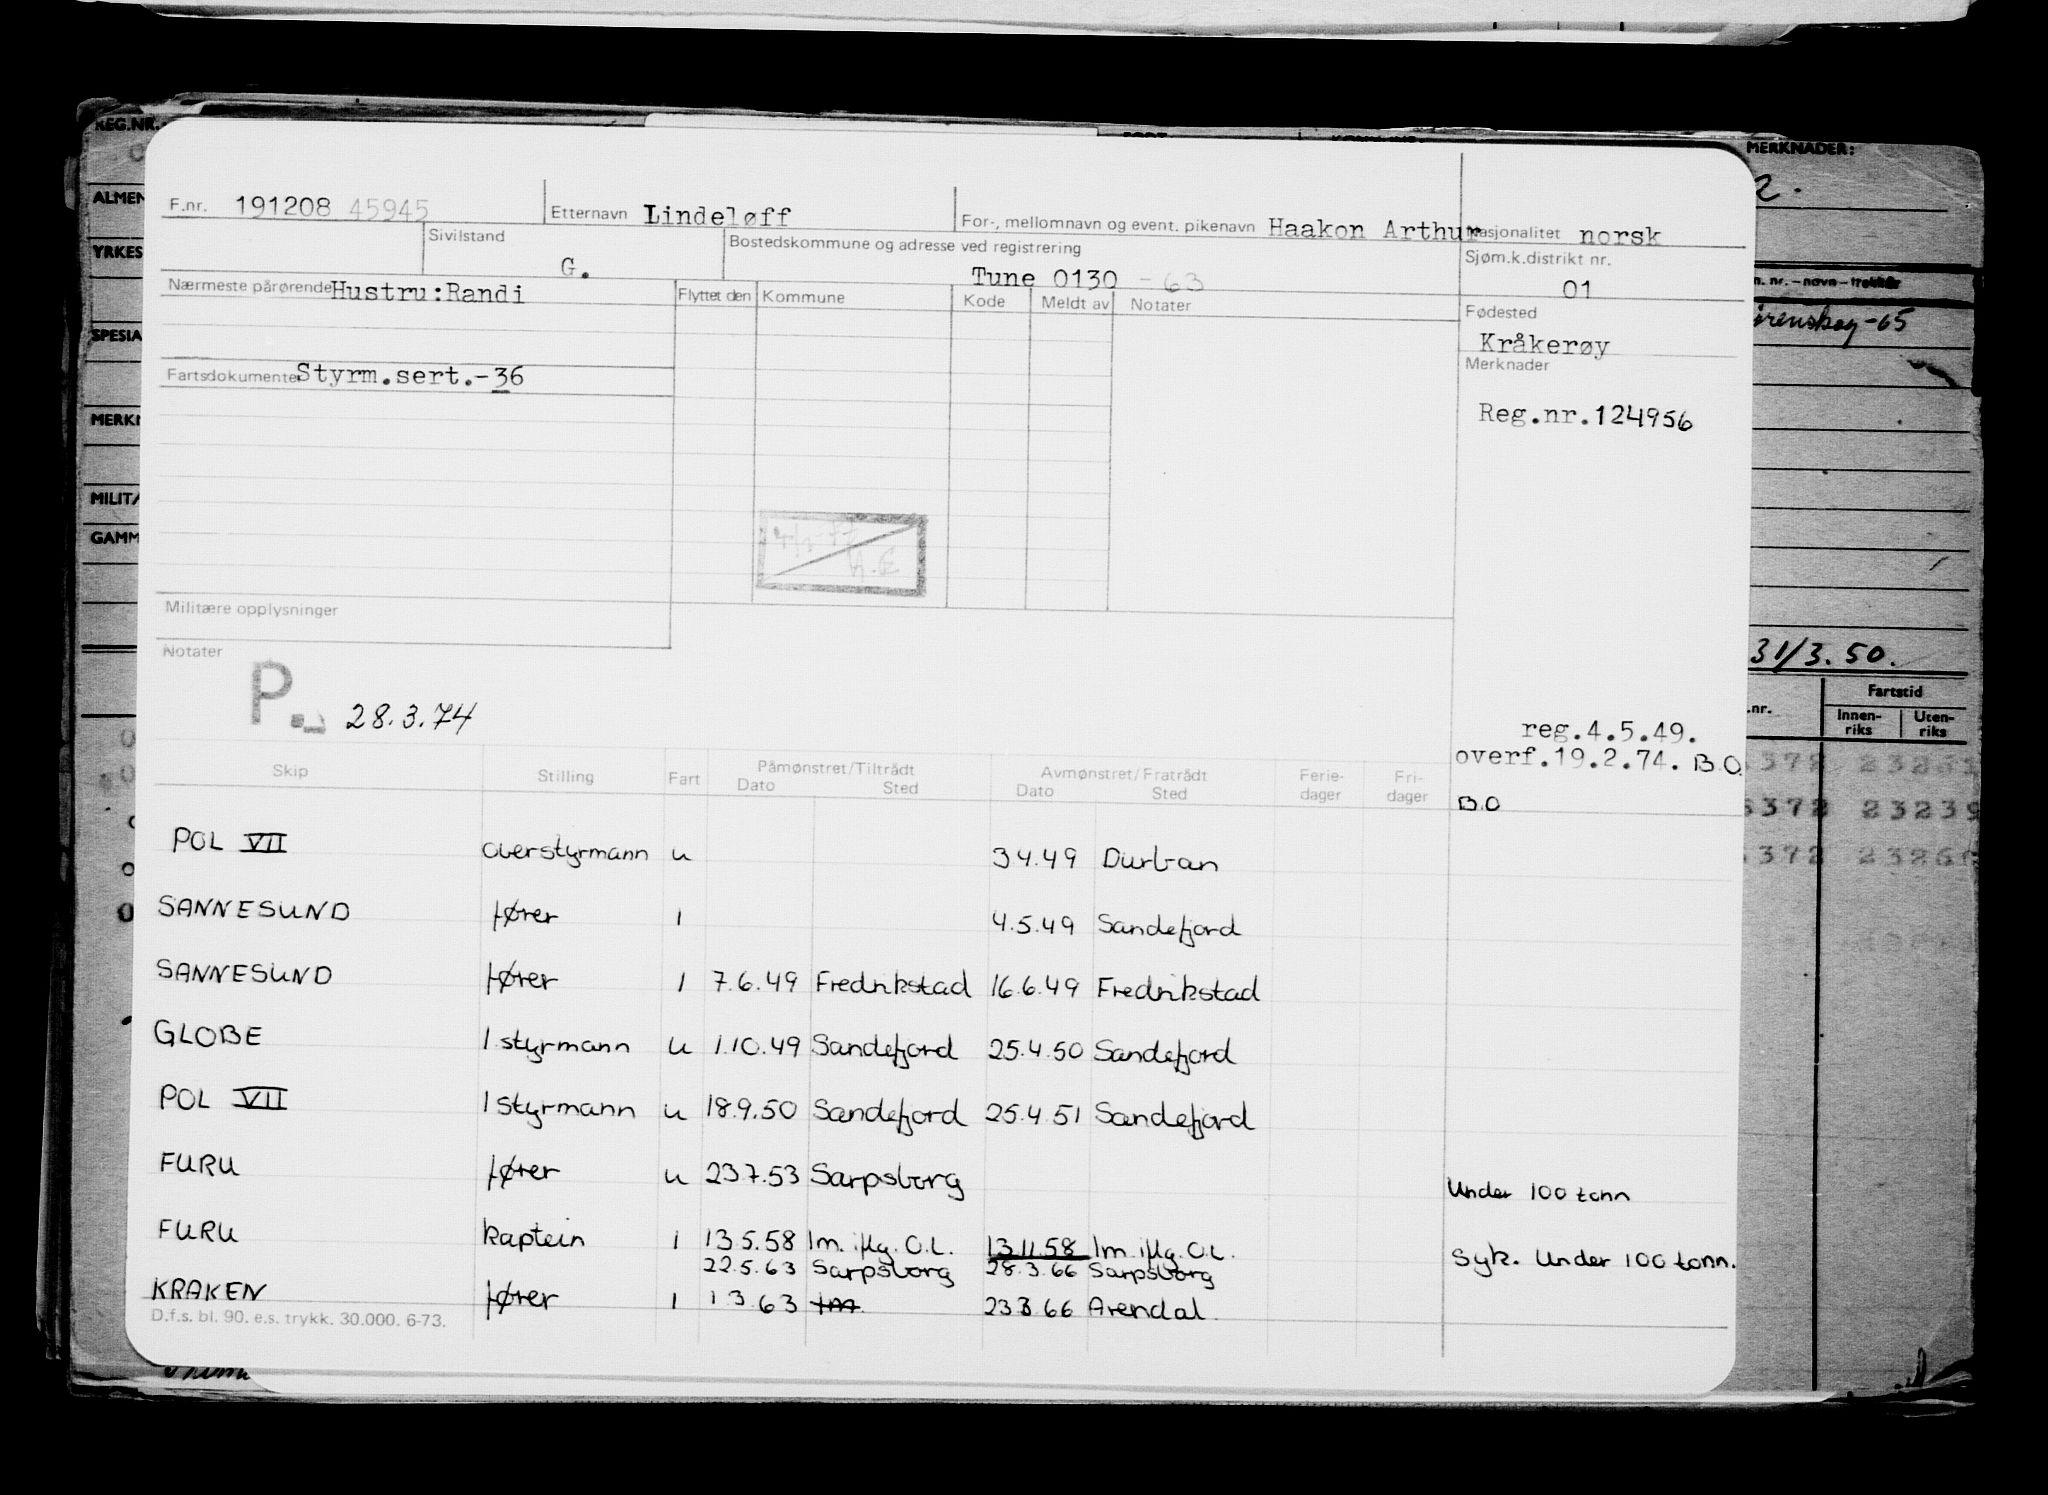 REG.NR. MERKNADER:
ALMEN
YRKES
SPESIA
MERKN
MILITÆ
GAMM
F.nr. 191208 45945 Etternavn Lindeløff For-, mellomnavn og event. pikenavn Haakon Arthur Nasjonalitet norsk
Sivilstand G. Bostedskommune og adresse ved registrering Tune 0130 -63 Sjøm.k.distrikt nr. 01
Nærmeste pårørende Hustru:Randi Flyttet den Kommune Kode Meldt av Notater
Fødested
Kråkerøy
Fartsdokumenter Styrm.sert.-36
Merknader
Reg.nr.124956
Militære opplysninger
Notater
P. 28.3.74
31/3.50.
reg.4.5.49.
overf.19.2.74. B.O.
B.O
Fartstid
Innen-riks Uten-riks
Skip Stilling Fart Påmønstret/Tiltrådt Avmønstret/Fratrådt Ferie-dager Fri-dager
Dato Sted Dato Sted
POL VII overstyrmann u 34.49 Durban
SANNESUND fører 1 4.5.49 Sandefjord
SANNESUND fører 1 7.6.49 Fredrikstad 16.6.49 Fredrikstad
GLOBE 1 styrmann u 1.10.49 Sandefjord 25.4.50 Sandefjord
POL VII 1 styrmann u 18.9.50 Sandefjord 25.4.51 Sandefjord
FURU fører u 23.7.53 Sarpsborg Under 100 tonn
FURU kaptein 1 13.5.58 Im. iflg. O.L. 13.11.58 Im iflg. O.L. Syk. Under 100 tonn.
22.5.63 Sarpsborg 28.3.66 Sarpsborg
KRAKEN fører 1 1.3.63 Im. 23.3.66 Arendal.
D.f.s. bl. 90. e.s. trykk. 30.000. 6-73.